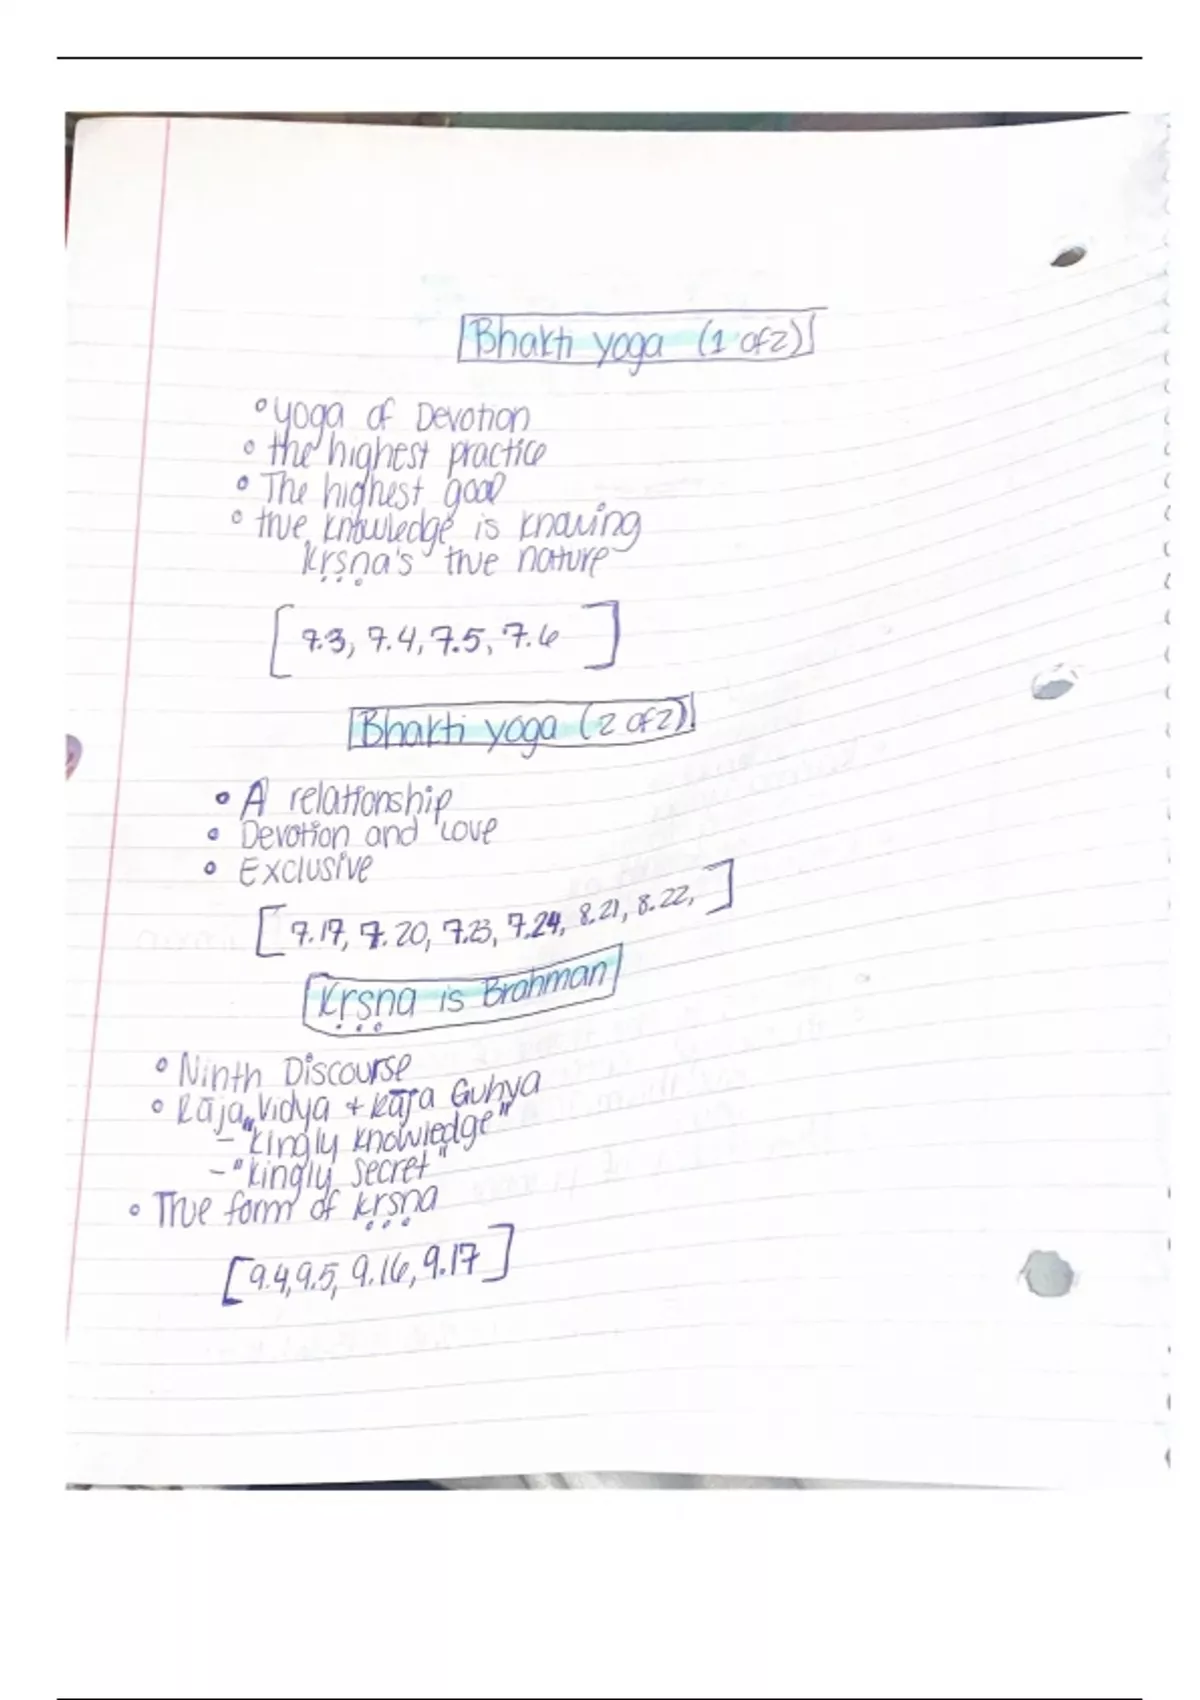 Bhakti yoga (1 of 2)
• yoga of Devotion
• the highest practice
• The highest goal
• true knowledge is knowing
Kṛṣṇa's true nature
[7.3, 7.4, 7.5, 7.6]
Bhakti yoga (2 of 2)
• A relationship
• Devotion and Love
• Exclusive
[7.17, 7.20, 7.23, 7.24, 8.21, 8.22,]
Kṛṣṇa is Brahman
• Ninth Discourse
• Rāja Vidya + Rāja Guhya
- "kingly knowledge"
- "kingly secret"
• True form of kṛṣṇa
[9.4, 9.5, 9.16, 9.17]